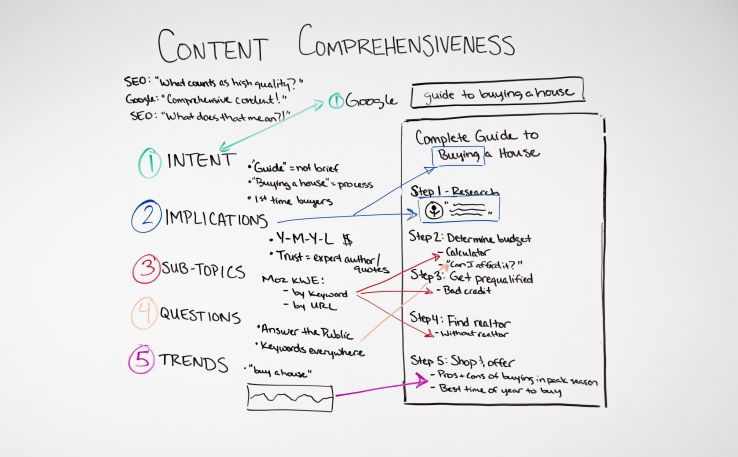 CONTENT COMPREHENSIVENESS
SEO: "What counts as high quality?"
Google: "Comprehensive content!"
SEO: "What does that mean?!"
1 Google
guide to buying a house
1 INTENT
• "Guide" = not brief
• "Buying a house" = process
• 1st time buyers
2 IMPLICATIONS
• Y-M-Y-L $
• Trust = expert author/
quotes
3 SUB-TOPICS
MOZ KWE:
- by keyword
- by URL
4 QUESTIONS
• Answer the Public
• Keywords everywhere
5 TRENDS
• "buy a house"
Complete Guide to
Buying a House
Step 1 - Research
" "
Step 2: Determine budget
- Calculator
- "Can I afford it?"
Step 3: Get prequalified
- Bad credit
Step 4: Find realtor
- Without realtor
Step 5: Shop & offer
- Pros + cons of buying in peak season
- Best time of year to buy